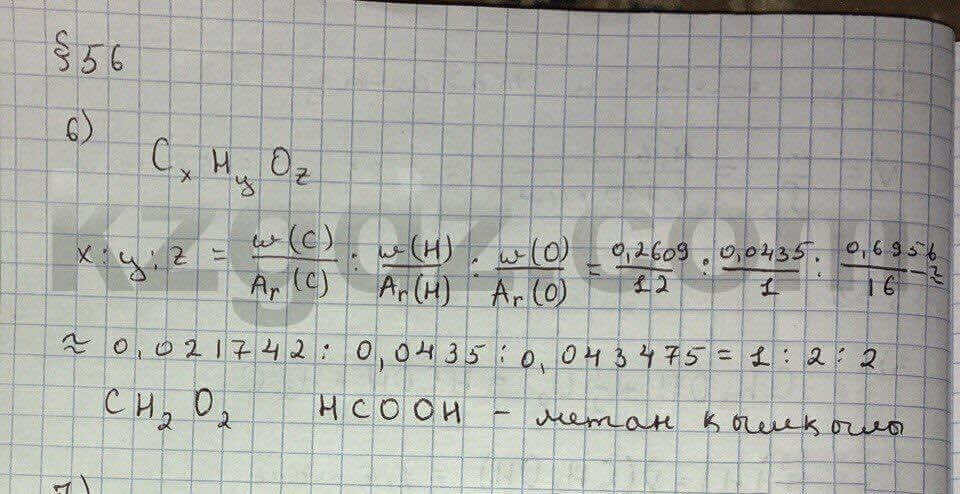 §56
6)
CₓHᵧO_z
x : y : z = w(C)/Ar(C) : w(H)/Ar(H) : w(O)/Ar(O) = 0,2609/12 : 0,0435/1 : 0,6956/16 ≈
≈ 0,021742 : 0,0435 : 0,043475 = 1 : 2 : 2
CH₂O₂ HCOOH – метан қышқылы
7)
kzgdz.com